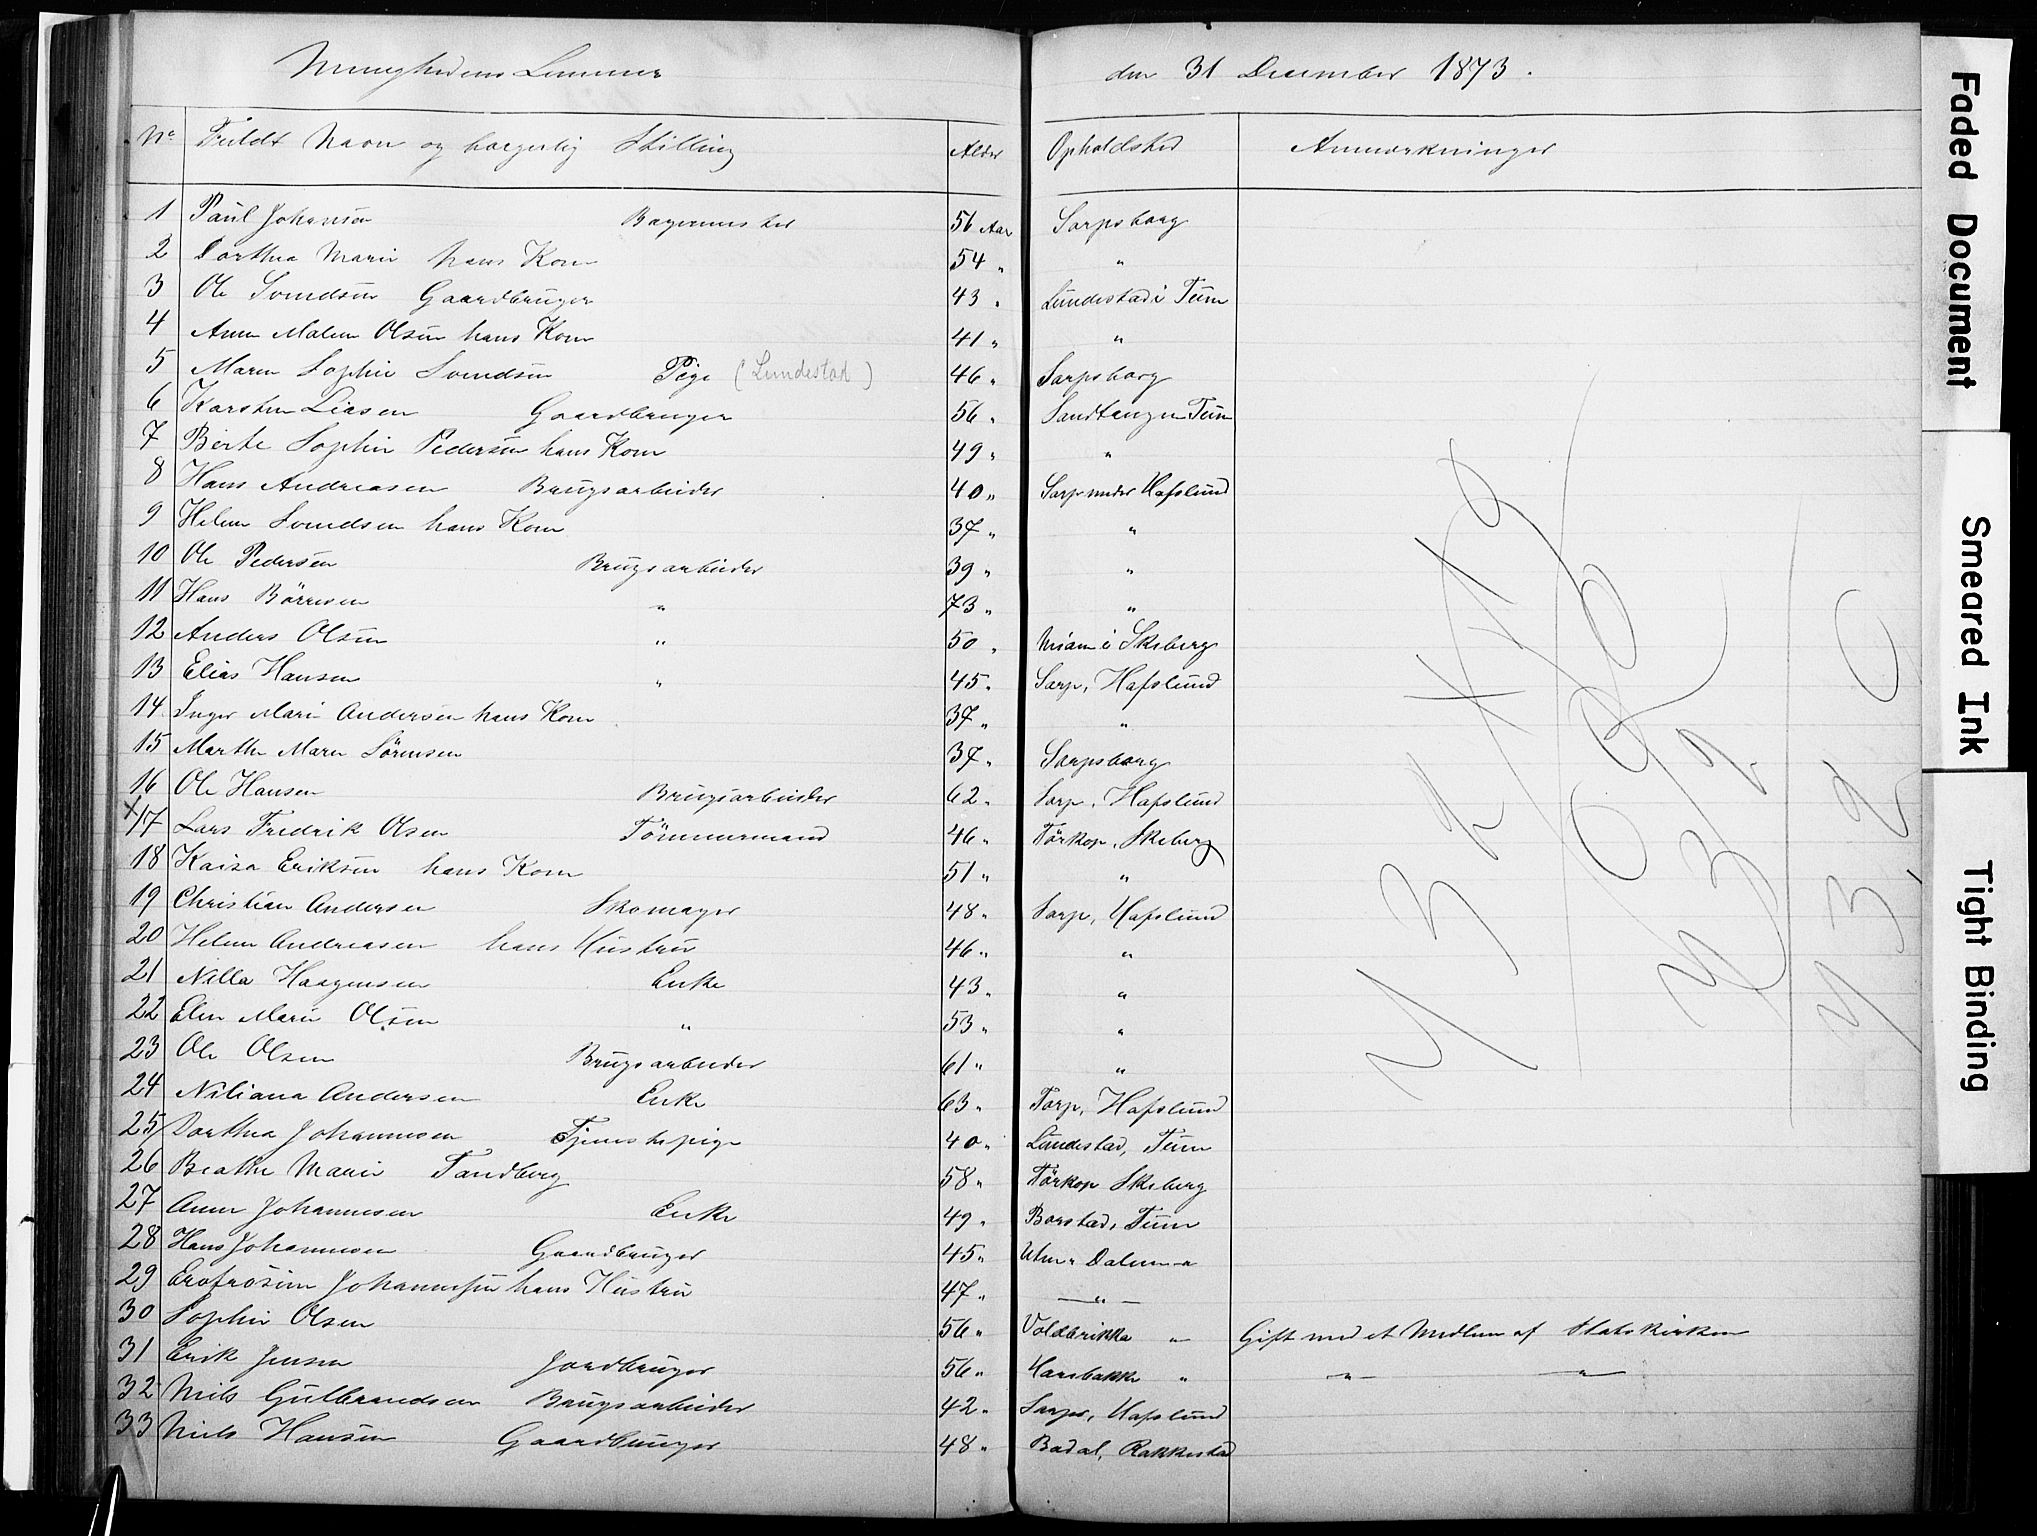 Menighedens Lemmer den 31 December 1873.
No Fuldt Navn og borgerlig Stilling Alder Opholdsted Anmærkninger
1 Paul Johansen Bagermester 56 Aar Sarpsborg
2 Dorthea Marie hans Kone 54 " "
3 Ole Svendsen Gaardbruger 43 " Lundestad i Tune
4 Anne Malene Olsen hans Kone 41 " "
5 Maren Sophie Svendsen Pige (Lundestad) 46 " Sarpsborg
6 Karsten Liasen Gaardbruger 56 " Sandtangen Tune
7 Berte Sophie Pedersen hans Kone 49 " "
8 Hans Andreasen Brugsarbeider 40 " Sarp under Hafslund
9 Helene Svendsen hans Kone 37 " "
10 Ole Pedersen Brugsarbeider 39 " "
11 Hans Börresen " 73 " "
12 Anders Olsen " 50 " i Skeberg
13 Elias Hansen " 45 " Sarp, Hafslund
14 Inger Marie Andersen hans Kone 37 " "
15 Marthe Maren Sörensen 37 " Sarpsborg
16 Ole Hansen Brugsarbeider 62 " Sarp, Hafslund
x 17 Lars Fredrik Olsen Tömmermand 46 " Törkop, Skeberg
18 Kaisa Eriksen hans Kone 51 " "
19 Christian Andersen Skomager 48 " Sarp, Hafslund
20 Helene Andreasen hans Hustru 46 " "
21 Nilla Haagensen Enke 43 " "
22 Elen Marie Olsen " 53 " "
23 Ole Olsen Brugsarbeider 61 " "
24 Niliana Andersen Enke 63 " Torp, Hafslund
25 Dorthea Johannesen Tjenestepige 40 " Lundestad, Tune
26 Beathe Marie Tandberg 58 " Törkop Skeberg
27 Anne Johannesen Enke 49 " Borstad, Tune
28 Hans Johannesen Gaardbruger 45 " Utne Dalene "
29 Erofrosine Johannesen hans Hustru 47 " "
30 Sophie Olsen 56 " Voldbrikka " Gift med et Medlem af Statskirken
31 Erik Jensen Jordbruger 56 " Haresbakke " " "
32 Nils Gulbrandsen Brugsarbeider 42 " Sarps, Hafslund
33 Niels Hansen Gaardbruger 48 " Bodal, Rakkestad
Faded Document
Smeared Ink
Tight Binding